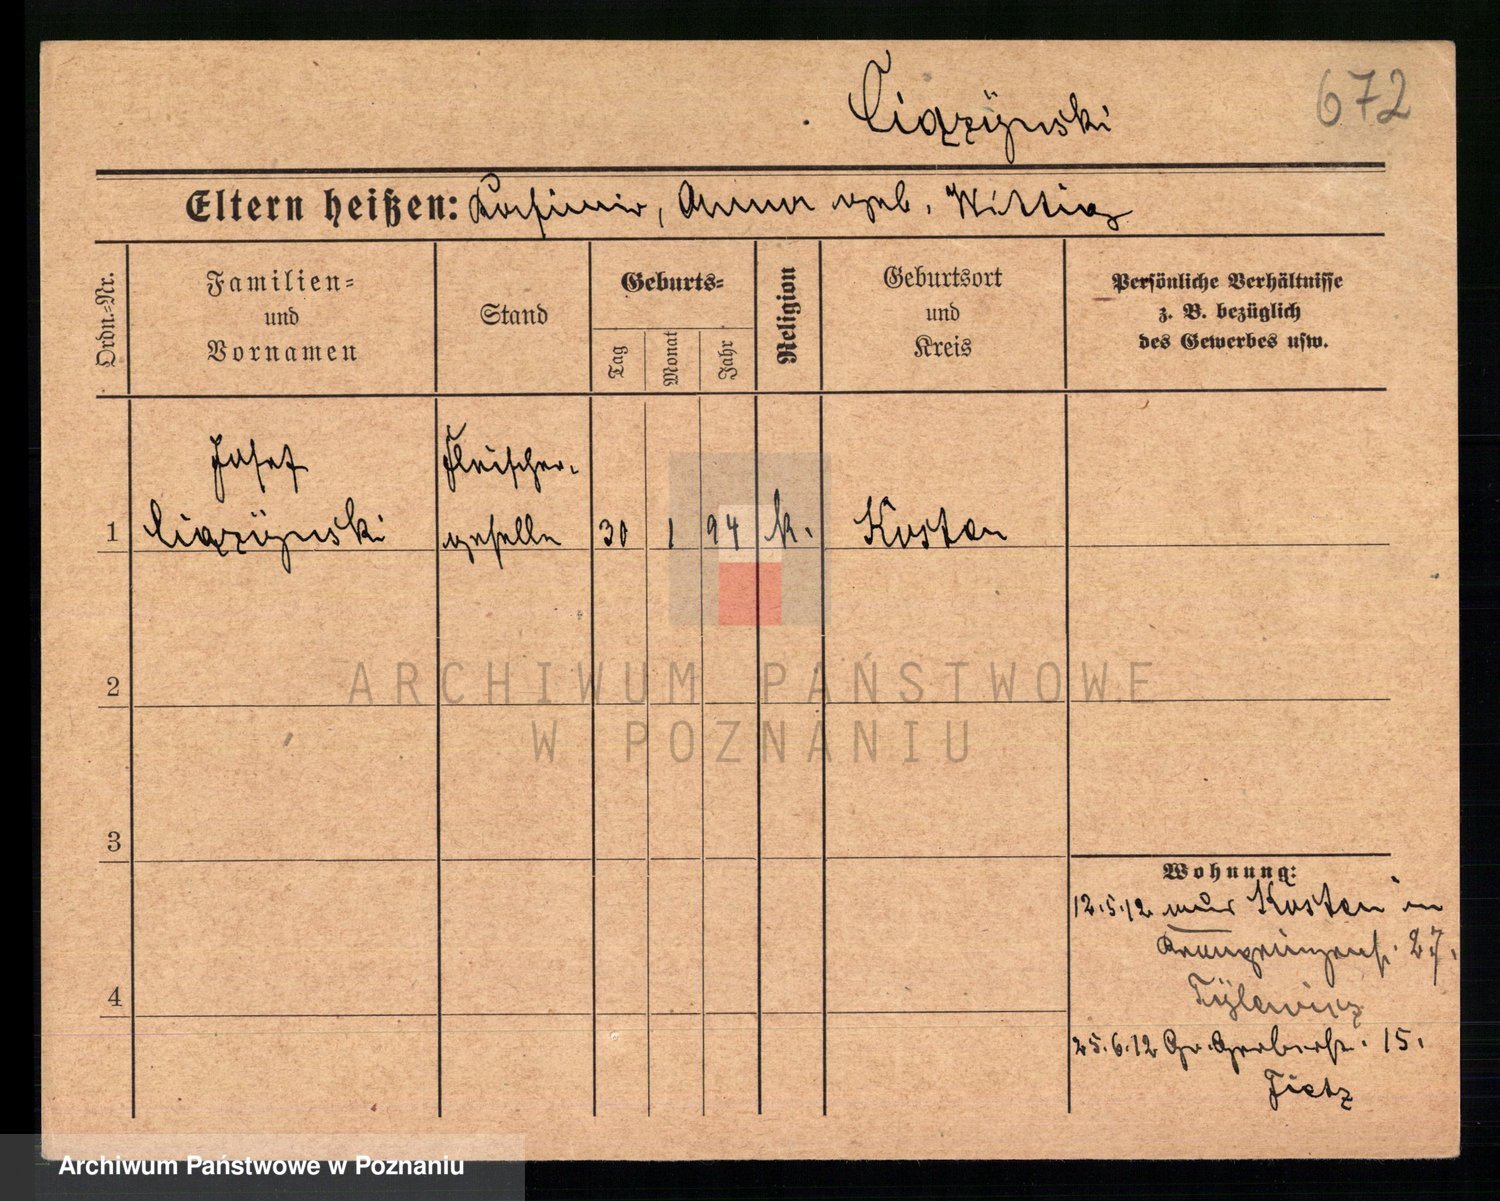 Ciązÿnski
672
Eltern heißen: Kasimir, Anna geb. Wittig
Ordn.-Nr.
Familien-
und
Vornamen
Stand
Geburts-
Tag
Monat
Jahr
Religion
Geburtsort
und
Kreis
Persönliche Verhältnisse
z. B. bezüglich
des Gewerbes usw.
Josef
Fleischer-
1 Ciązÿnski geselle 30 1 94 k. Kosten
2
3
4
ARCHIWUM PAŃSTWOWE
W POZNANIU
Wohnung:
12.5.12 aus Kosten in
Kronprinzenst. 27.
25.6.12 Gr. Gerberst. 15.
Tietz
Archiwum Państwowe w Poznaniu